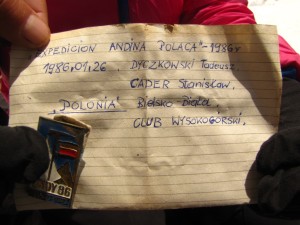 EXPEDICION ANDINA POLACA"-1986r
1986.01.26. DYCZKOWSKI Tadeusz
CADER Stanisław.
"POLONIA" Bielsko-Biała
CLUB WYSOKOGÓRSKI.
86